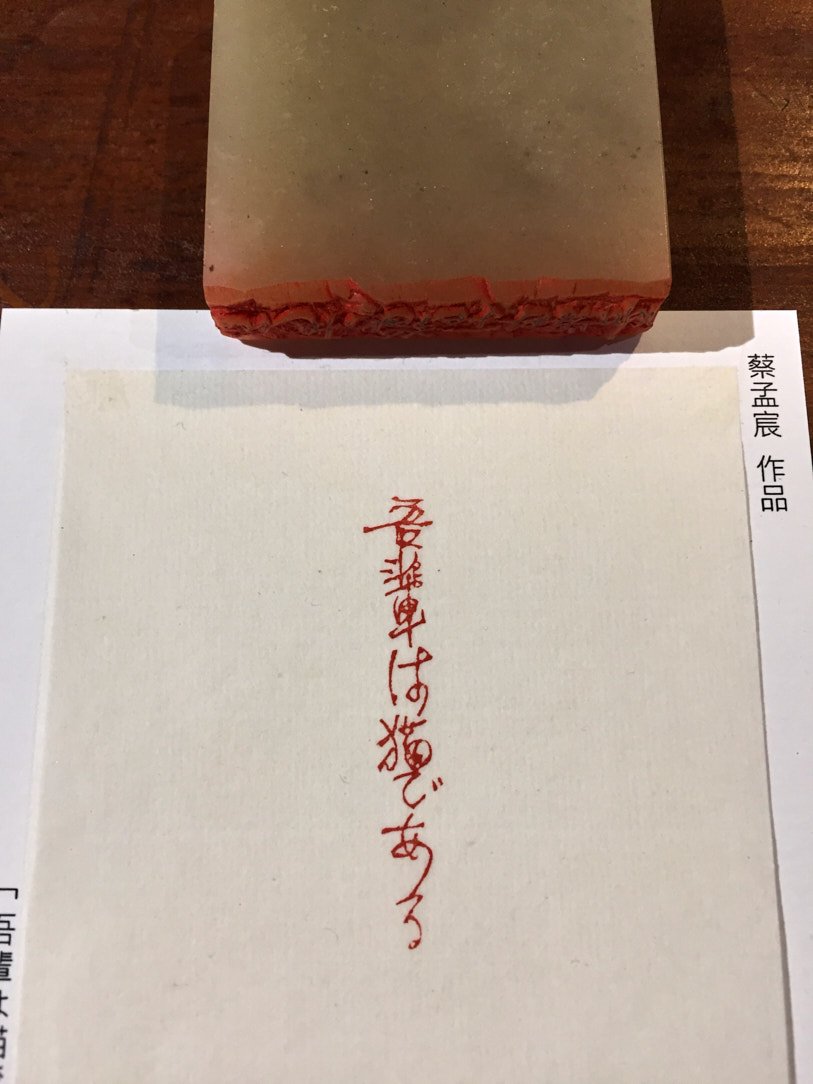 蔡孟宸 作品
吾輩は猫である
「吾輩は猫